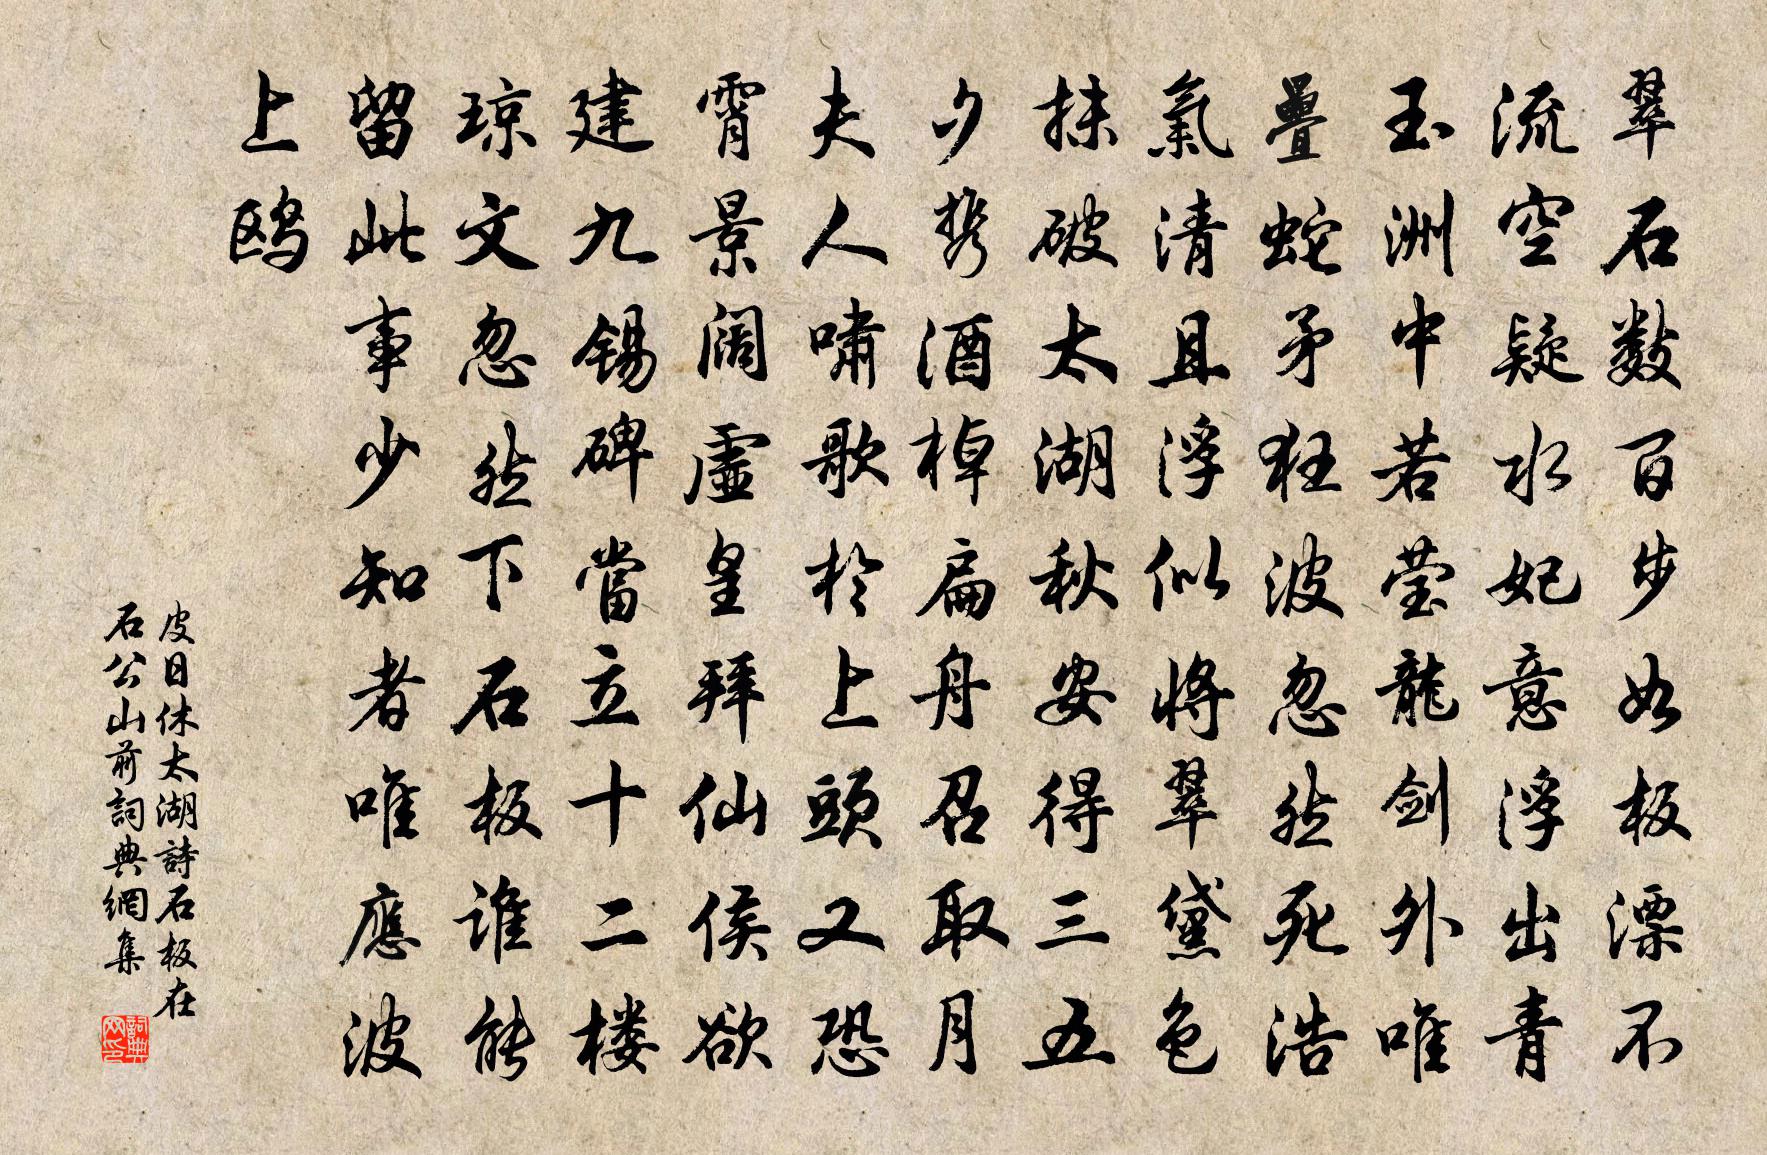 翠石數百步如板漂不
流空疑水妃意浮出青
玉洲中若莹龍劍外唯
疊蛇矛狂波忽然死浩
氣清且浮似將翠黛色
抹破太湖秋安得三五
夕携酒棹扁舟召取月
夫人嘯歌於上頭又恐
霄景阔虛皇拜仙侯欲
建九锡碑當立十二楼
琼文忽然下石板谁能
留此事少知者唯應波
上鸥
皮日休太湖詩石板在
石公山前詞典網集
詞典网印